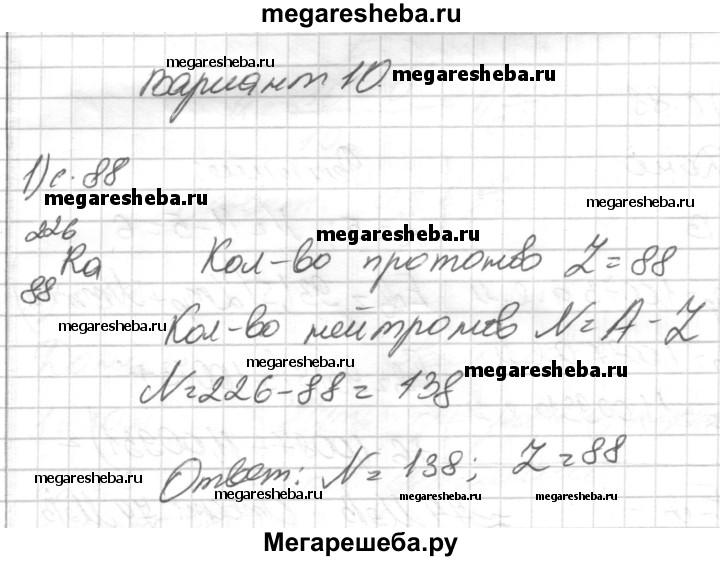 megaresheba.ru
megaresheba.ru megaresheba.ru
Вариант 10. megaresheba.ru
1) с. 88
megaresheba.ru megaresheba.ru
226 megaresheba.ru
Ra Кол-во протонов Z = 88
88
megaresheba.ru Кол-во нейтронов N = A - Z
megaresheba.ru megaresheba.ru
N = 226 - 88 = 138
Ответ: N = 138; Z = 88
megaresheba.ru megaresheba.ru megaresheba.ru megaresheba.ru
Мегарешеба.ру